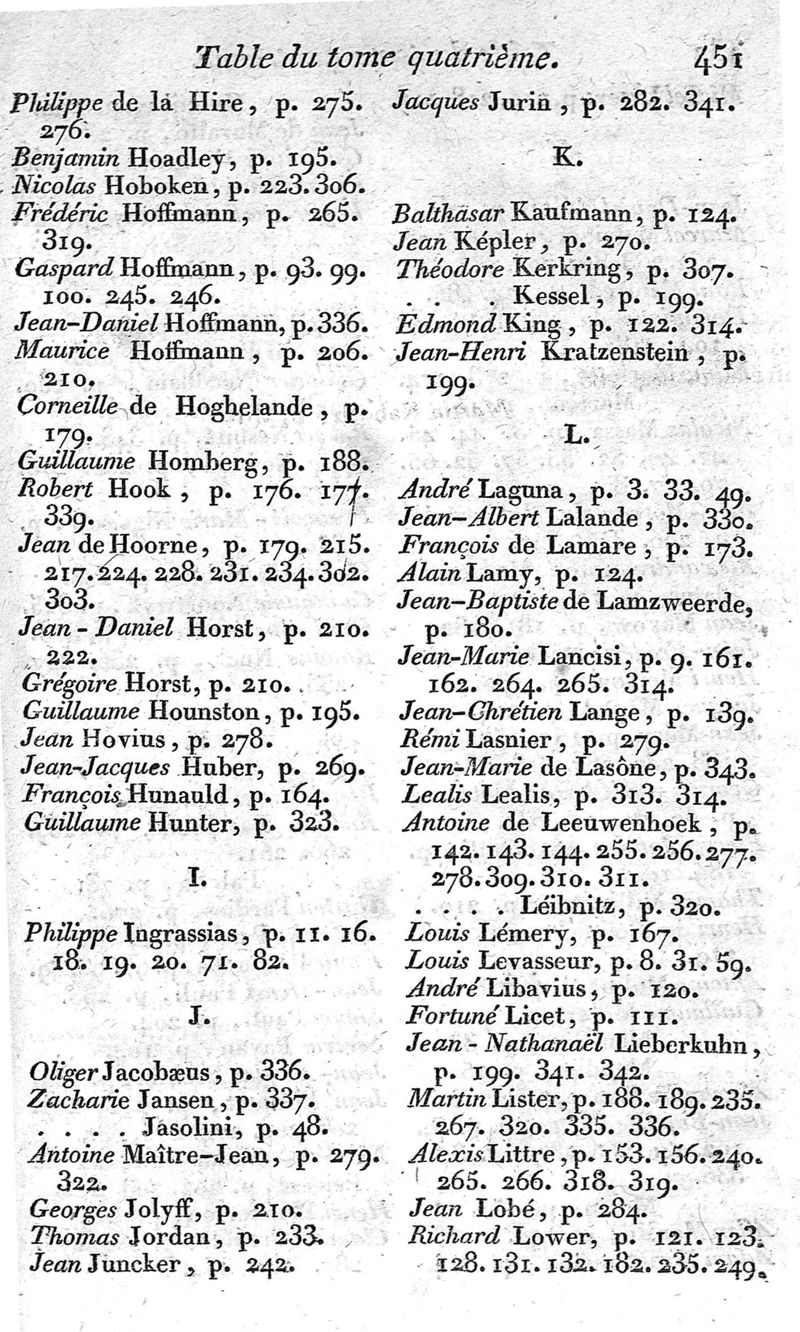 Table du tome quatrième. 451
Philippe de la Hire, p. 275.
276.
Benjamin Hoadley, p. 195.
Nicolas Hoboken, p. 223. 306.
Frédéric Hoffmann, p. 265.
319.
Gaspard Hoffmann, p. 93. 99.
100. 245. 246.
Jean-Daniel Hoffmann, p. 336.
Maurice Hoffmann, p. 206.
210.
Corneille de Hoghelande, p.
179.
Guillaume Homberg, p. 188.
Robert Hook, p. 176. 177.
339.
Jean de Hoorne, p. 179. 215.
217. 224. 228. 231. 234. 302.
303.
Jean-Daniel Horst, p. 210.
222.
Grégoire Horst, p. 210.
Guillaume Hounston, p. 195.
Jean Hovius, p. 278.
Jean-Jacques Huber, p. 269.
François Hunauld, p. 164.
Guillaume Hunter, p. 323.
I.
Philippe Ingrassias, p. 11. 16.
18. 19. 20. 71. 82.
J.
Oliger Jacobæus, p. 336.
Zacharie Jansen, p. 337.
. . . . Jasolini, p. 48.
Antoine Maître-Jean, p. 279.
322.
Georges Jolyff, p. 210.
Thomas Jordan, p. 233.
Jean Juncker, p. 242.
Jacques Jurin, p. 282. 341.
K.
Balthasar Kaufmann, p. 124.
Jean Képler, p. 270.
Théodore Kerkring, p. 307.
. . . Kessel, p. 199.
Edmond King, p. 122. 314.
Jean-Henri Kratzenstein, p.
199.
L.
André Laguna, p. 3. 33. 49.
Jean-Albert Lalande, p. 330.
François de Lamare, p. 173.
Alain Lamy, p. 124.
Jean-Baptiste de Lamzweerde,
p. 180.
Jean-Marie Lancisi, p. 9. 161.
162. 264. 265. 314.
Jean-Chrétien Lange, p. 139.
Rémi Lasnier, p. 279.
Jean-Marie de Lasône, p. 343.
Lealis Lealis, p. 313. 314.
Antoine de Leeuwenhoek, p.
142. 143. 144. 255. 256. 277.
278. 309. 310. 311.
. . . . Léibnitz, p. 320.
Louis Lémery, p. 167.
Louis Levasseur, p. 8. 31. 59.
André Libavius, p. 120.
Fortuné Licet, p. 111.
Jean-Nathanaël Lieberkuhn,
p. 199. 341. 342.
Martin Lister, p. 188. 189. 235.
267. 320. 335. 336.
Alexis Littre, p. 153. 156. 240.
265. 266. 318. 319.
Jean Lobé, p. 284.
Richard Lower, p. 121. 123.
128. 131. 132. 182. 235. 249.